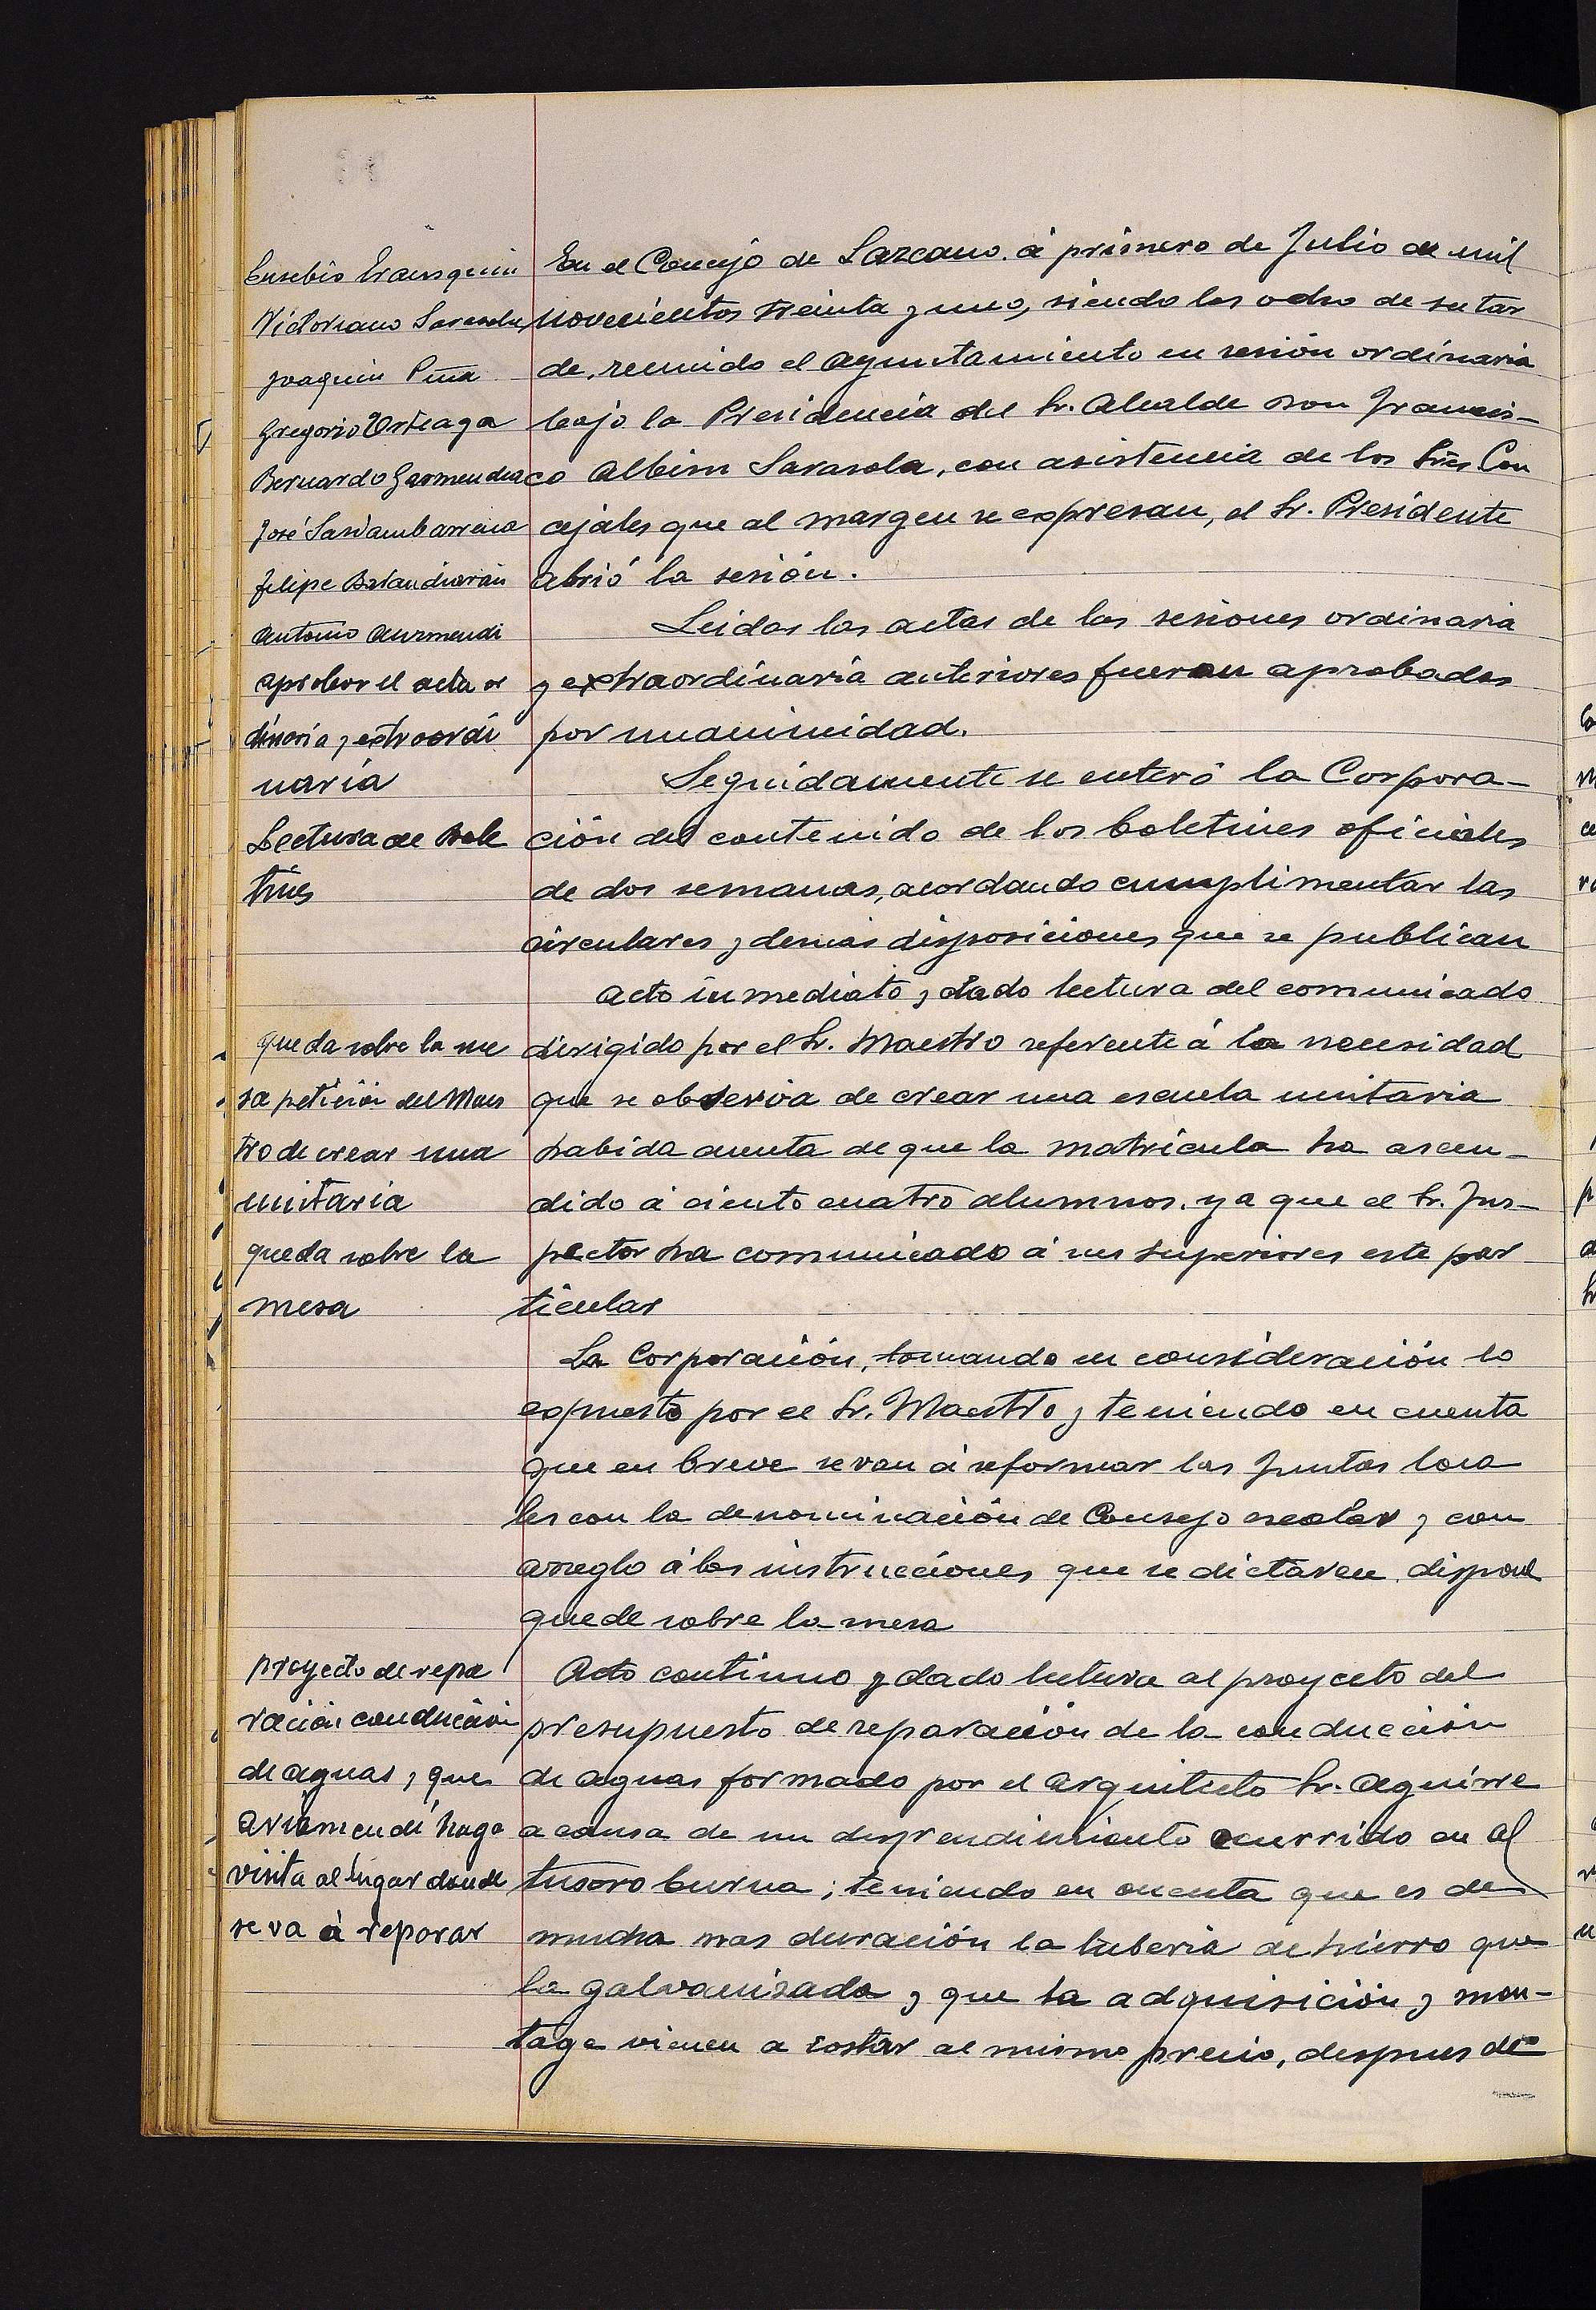 Eusebio Irausquin
Victoriano Sarasola
Joaquin Piña
Gregorio Urteaga
Bernardo Garmendia
José Sarriambarrena
Felipe Balandiarán
Antonio Aurmendi
aprobar el acta or
dinaria y extraordi
naria
Lectura de Bole
tines
queda sobre la me
sa petición del Maes
tro de crear una
unitaria
queda sobre la
mesa
proyecto de repa
ración conducción
de aguas, y que
Aviamendi haga
visita al lugar donde
se va á reparar
En el Concejo de Lazcano á primero de Julio de mil
novecientos treinta y uno, siendo las ocho de su tar
de, reunido el Ayuntamiento en sesión ordinaria
bajo la Presidencia del Sr. Alcalde Don Francis-
co Albisu Sarasola, con asistencia de los Sres Con
cejales que al margen se expresan, el Sr. Presidente
abrió la sesión.
Leidas las actas de las sesiones ordinaria
y extraordinaria anteriores fueron aprobadas
por unanimidad.
Seguidamente se enteró la Corpora-
ción del contenido de los boletines oficiales
de dos semanas, acordando cumplimentar las
circulares y demás disposiciones que se publican
Acto inmediato y dado lectura del comunicado
dirigido por el Sr. Maestro referente á la necesidad
que se observa de crear una escuela unitaria
habida cuenta de que la matricula ha ascen-
dido á ciento cuatro alumnos. ya que el Sr. Ins-
pector ha comunicado á sus superiores este par
ticular
La Corporación, tomando en consideración lo
expuesto por el Sr. Maestro y teniendo en cuenta
que en breve se van á reformar las Juntas loca
les con la denominación de Consejo escolar y con
arreglo á las instrucciones que se dictaren, dispone
quede sobre la mesa
Acto continuo y dado lectura al proyecto del
presupuesto de reparación de la conducción
de aguas formado por el arquitecto Sr. Aguirre
a causa de un desprendimiento ocurrido en Al
tusoro burua; teniendo en cuenta que es de
mucha mas duración la tuberia de hierro que
la galvanizada y que la adquisición y mon-
tage vienen a costar al mismo precio, despues de